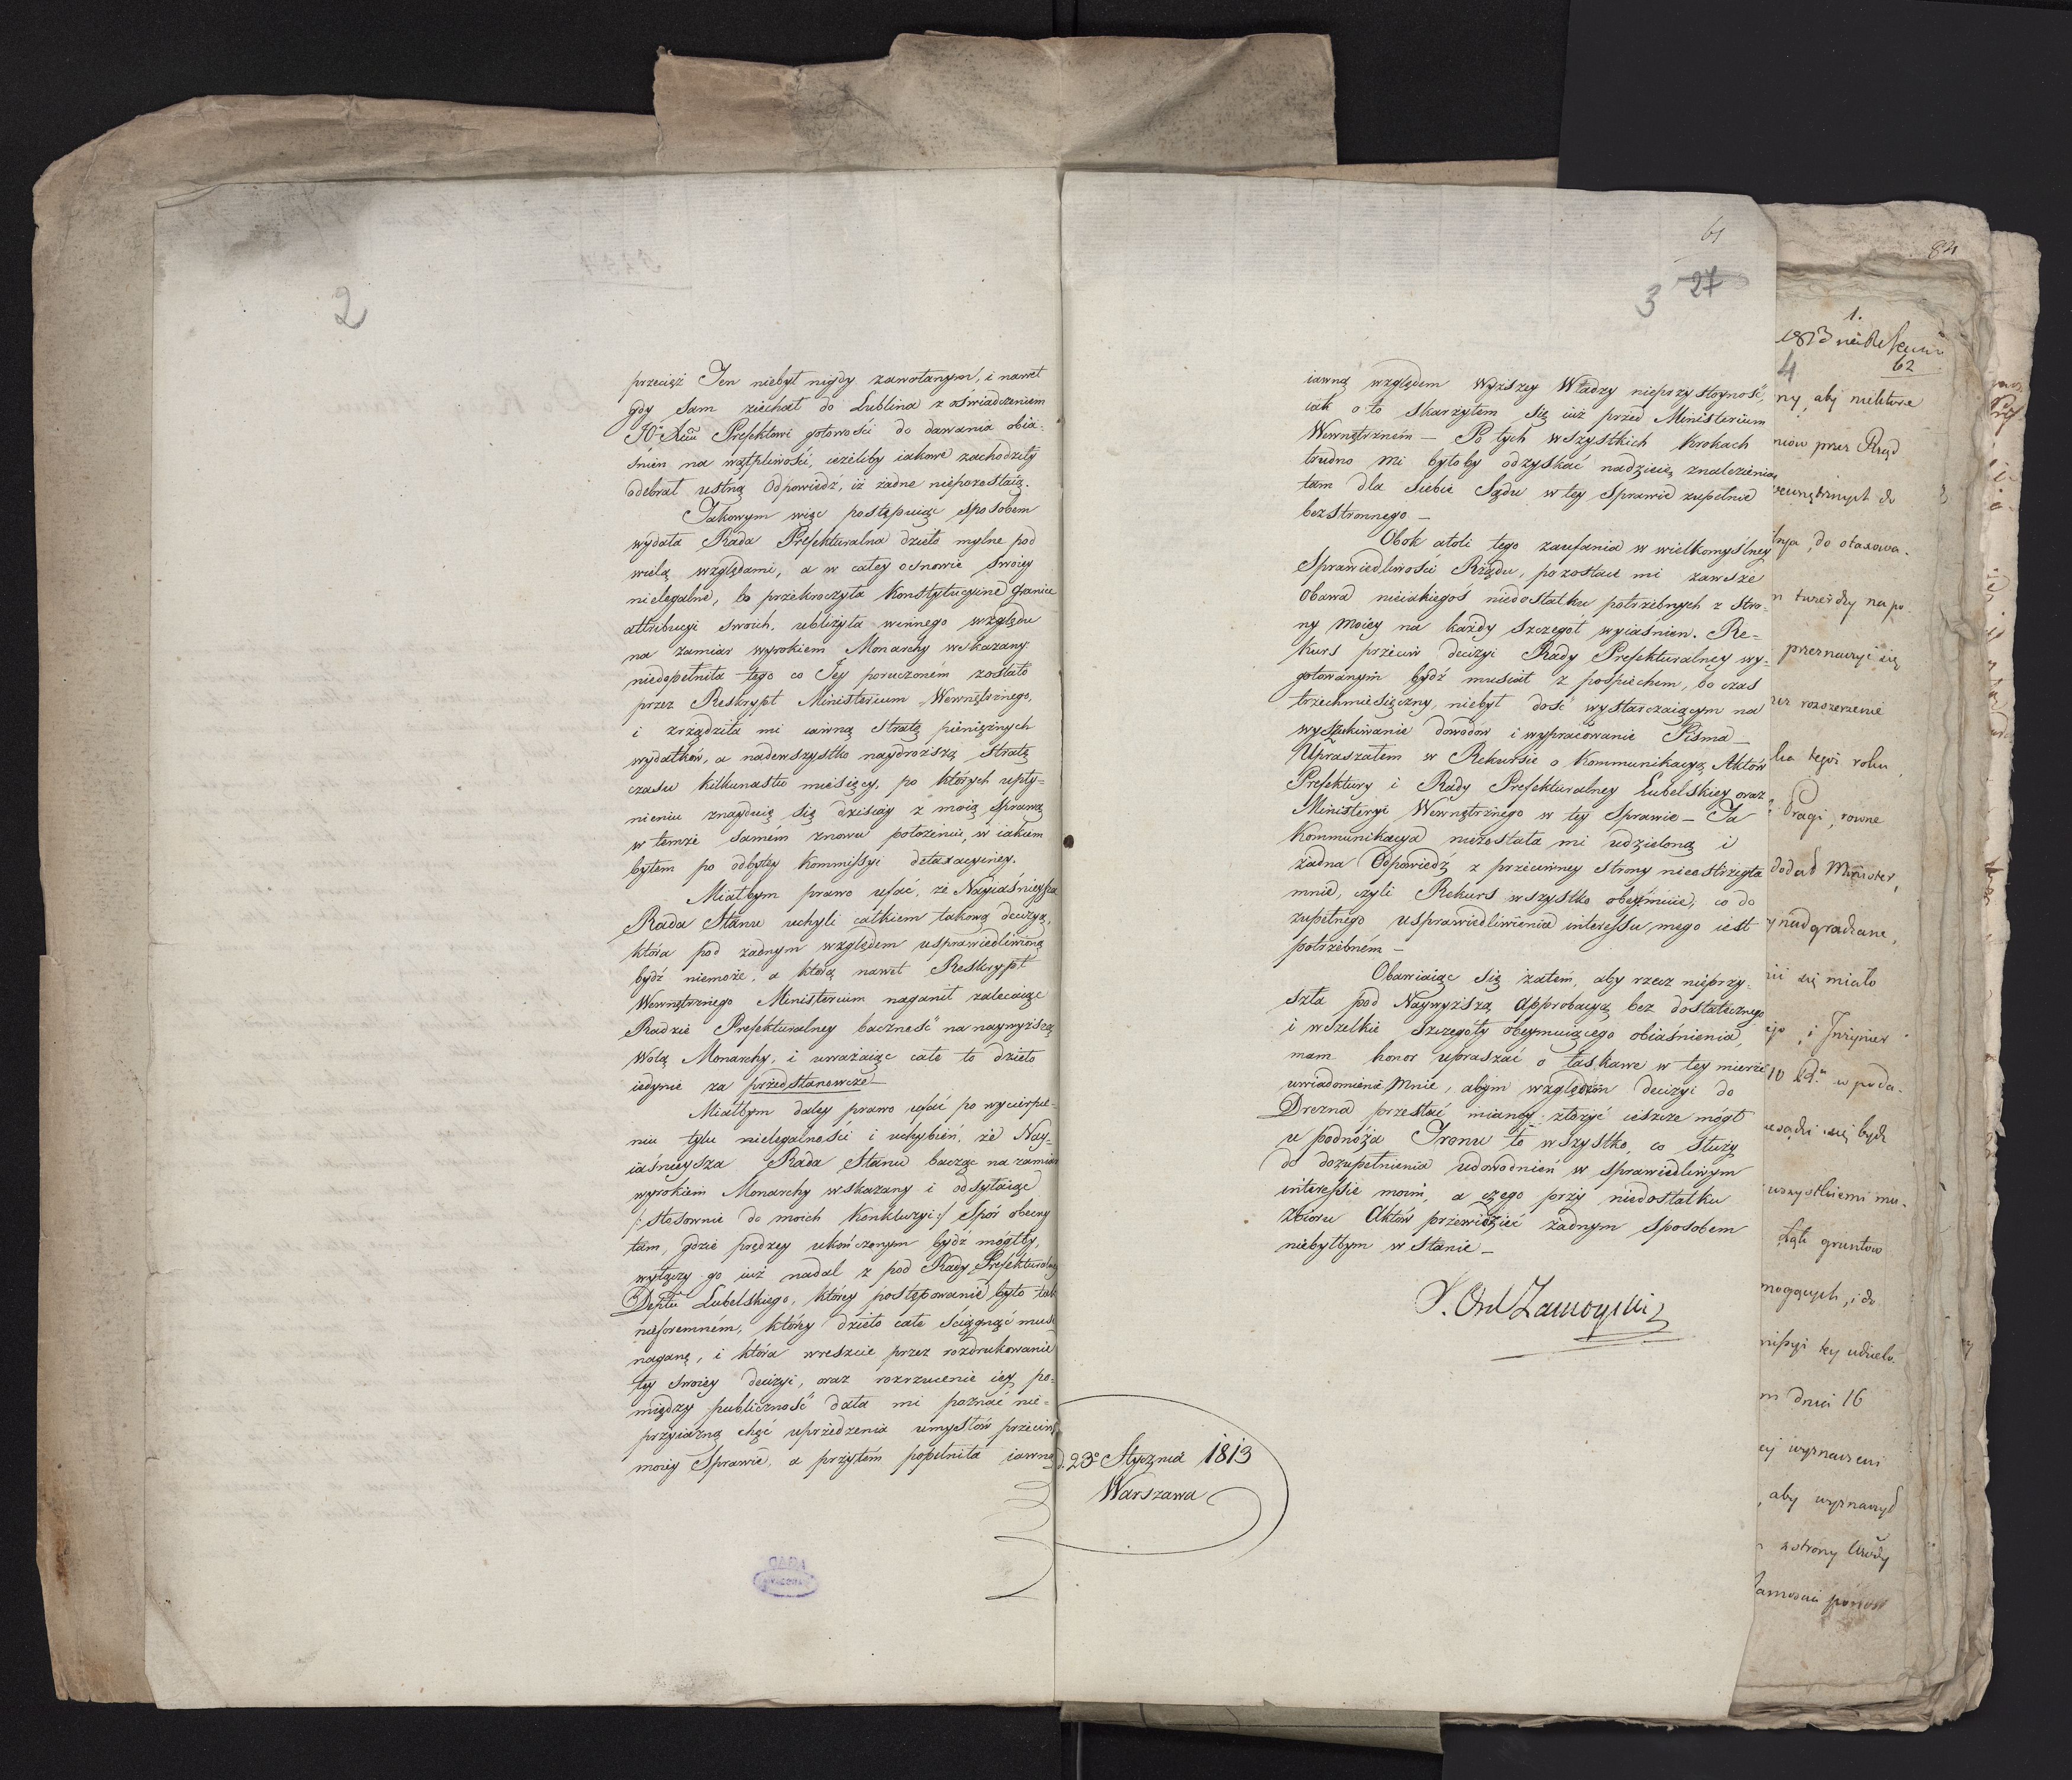 2
przecięż Ten niebył nigdy zawołanym, i nawet
gdy sam ziechał do Lublina z oświadczeniem
Prefektowi gotowości do dawania obia-
śnien na wątpliwości, ieżeliby iakowe zachodziły
odebrał ustną Odpowiedź, iż żadne niepozostaią.
Takowym więc postępuiąc sposobem
wydała Rada Prefekturalna dzieło mylne pod
wielą względami, a w całey osnowie swoiey
nielegalne, bo przekroczyła Konstytucyine granice
attribucyi swoich, ubliżyła winnego względu
na zamiar wyrokiem Monarchy wskazany
niedopełniła tego co Jey poruczoném zostało
przez Reskrypt Ministerium Wewnętrznego,
i zrządziła mi iawną stratę pieniężnych
wydatków, a nadewszystko naydroższą stratę
czasu kilkunastu miesięcy, po których upły-
nieniu znayduię się dzisiay z moią sprawą
w temże samém znowu położeniu, w iakiem
byłem po odbytey Kommissyi detaxacyiney.
Miałbym prawo ufać, że Nayiaśnieysza
Rada Stanu uchyli całkiem takową decyzyą,
która pod żadnym względem usprawiedliwioną
bydź niemoże, a którą nawet Reskrypt
Wewnętrznego Ministerium naganił zalecaiąc
Radzie Prefekturalney baczność na naywyższą
Wolą Monarchy, i uważaiąc całe to dzieło
iedynie za przedstanowcze —
Miałbym daley prawo ufać po wycierpie-
niu tylu nielegalności i uchybień, że Nay-
iaśnieysza Rada Stanu bacząc na zamiar
wyrokiem Monarchy wskazany i odsyłaiąc
/: stosownie do moich Konkluzyi :/ Spór obecny
tam, gdzie prędzey ukończonym bydź mógłby,
wyłączy go iuż nadal z pod Rady Prefekturalney
Deptu Lubelskiego, którey postępowanie było tak
nieforemném, którey dzieło całe ściągnąć musi
naganę, i która wreszcie przez rozdrukowanie
tey swoiey decyzyi, oraz rozrzucenie iey po-
między publiczność dała mi poznać nie-
przyiazną chęć uprzedzenia umysłów przeciw
moiey Sprawie, a przytém popełniła iawną
61
3 27
iawną względem Wyższey Władzy nieprzystoyność,
iak o to skarżyłem się iuż przed Ministerium
Wewnętrzném — Po tych wszystkich Krokach
trudno mi byłoby odzyskać nadzieię znalezienia
tam dla siebie Sądu w tey Sprawie zupełnie
bezstronnego —
Obok atoli tego zaufania w wielkomyślney
Sprawiedliwości Rządu, pozostaie mi zawsze
Obawa nieiakiegoś niedostatku potrzebnych z stro-
ny moiey na każdy szczegół wyiaśnien. Re-
kurs przeciw decyzyi Rady Prefekturalney wy-
gotowanym bydź musiał z pośpiechem, bo czas
trzechmiesięczny, niebył dość wystarczaiącym na
wyszukiwanie dowodów i wypracowanie Pisma —
Upraszałem w Rekursie o Kommunikacyą Aktów
Prefektury i Rady Prefekturalney Lubelskiey oraz
Ministeryi Wewnętrznego w tey Sprawie — Ta
Kommunikacya niezostała mi udzieloną i
żadna Odpowiedź z przeciwney strony nieostrzegła
mnie, czyli Rekurs wszystko obeymuie, co do
zupełnego usprawiedliwienia interessu mego iest
potrzebném —
Obawiaiąc się zatem, aby rzecz nieprzy-
szła pod Naywyższą Approbacyą bez dostatecznego
i wszelkie szczegóły obeymuiącego obiaśnienia,
mam honor upraszać o łaskawe w tey mierze
uwiadomienie Mnie, abym względem decyzyi do
Drezna przesłać mianey złożyć ieszcze mógł
u podnóża Tronu to wszystko, co służy
do dozupełnienia udowodnień w sprawiedliwym
interessie moim, a czego przy niedostatku
zbioru Aktów przewidzieć żadnym sposobem
niebyłbym w stanie —
S. Ord Zamoyski
d. 23° Stycznia 1813
Warszawa
84
1.
4
62
ny, aby niektóre
niów przez Rząd
do otaxowa-
n twierdzy na po-
przeznaczyć się
rozszerzenie
tegoż roku
Pragi, równe
dodał Minister,
nadgradzane,
się miało
i Inżynier
w poda-
się bydź
wszystkiemi mu-
gruntów
mogących, i do
tey udzielo-
dnia 16
, aby wyznaczył
z strony